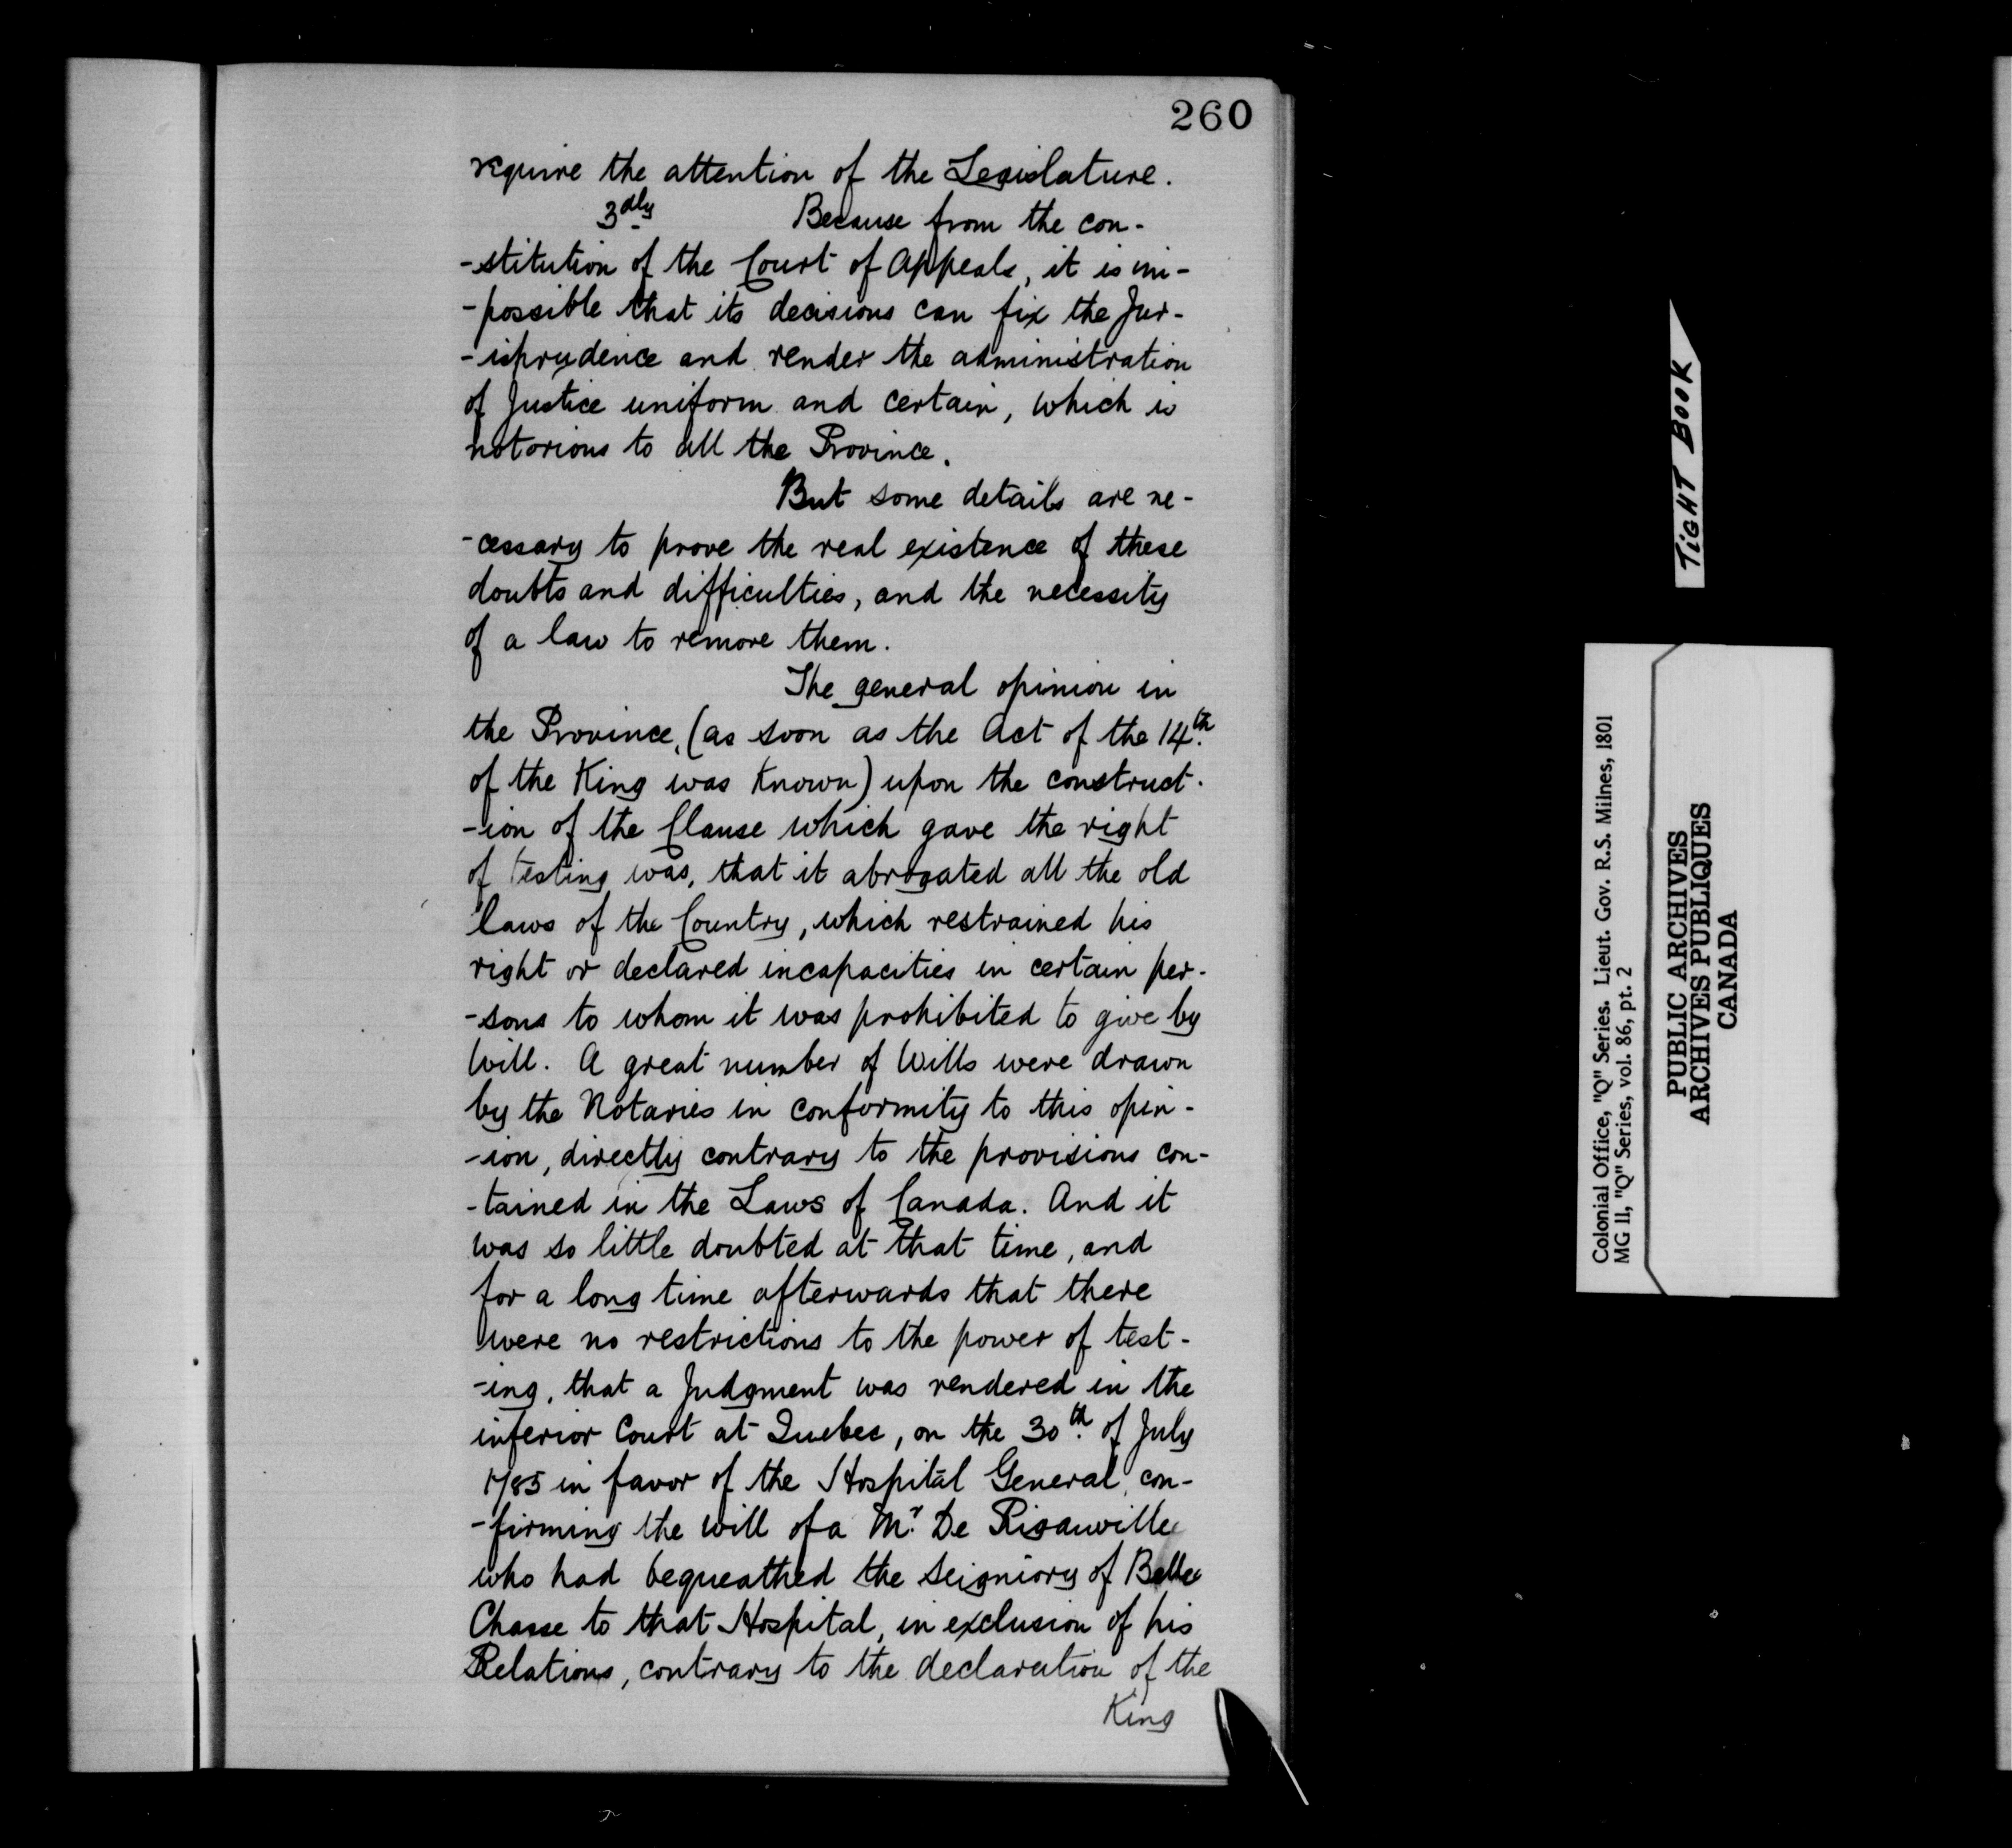 260
require the attention of the Legislature.
3dly Because from the con-
-stitution of the Court of Appeals, it is im-
-possible that its decisions can fix the Jur-
-isprudence and render the administration
of Justice uniform and certain, which is
notorious to all the Province.
But some details are ne-
-cessary to prove the real existence of these
doubts and difficulties, and the necessity
of a law to remove them.
The general opinion in
the Province, (as soon as the Act of the 14th.
of the King was known) upon the construct-
-ion of the Clause which gave the right
of testing was, that it abrogated all the old
laws of the Country, which restrained his
right or declared incapacities in certain per-
-sons to whom it was prohibited to give by
Will. A great number of Wills were drawn
by the Notaries in conformity to this opin-
-ion, directly contrary to the provisions con-
-tained in the Laws of Canada. And it
was so little doubted at that time, and
for a long time afterwards that there
were no restrictions to the power of test-
-ing, that a Judgment was rendered in the
inferior Court at Quebec, on the 30th. of July
1785 in favor of the Hospital General, con-
-firming the will of a Mr. De Rigauville
who had bequeathed the Seigniory of Belle
Chasse to that Hospital, in exclusion of his
Relations, contrary to the declaration of the
King
TIGHT BOOK
Colonial Office, "Q" Series. Lieut. Gov. R.S. Milnes, 1801
MG 11, "Q" Series, vol. 86, pt. 2
PUBLIC ARCHIVES
ARCHIVES PUBLIQUES
CANADA